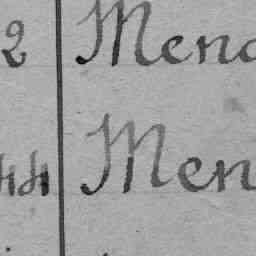 2 Mend
44 Men